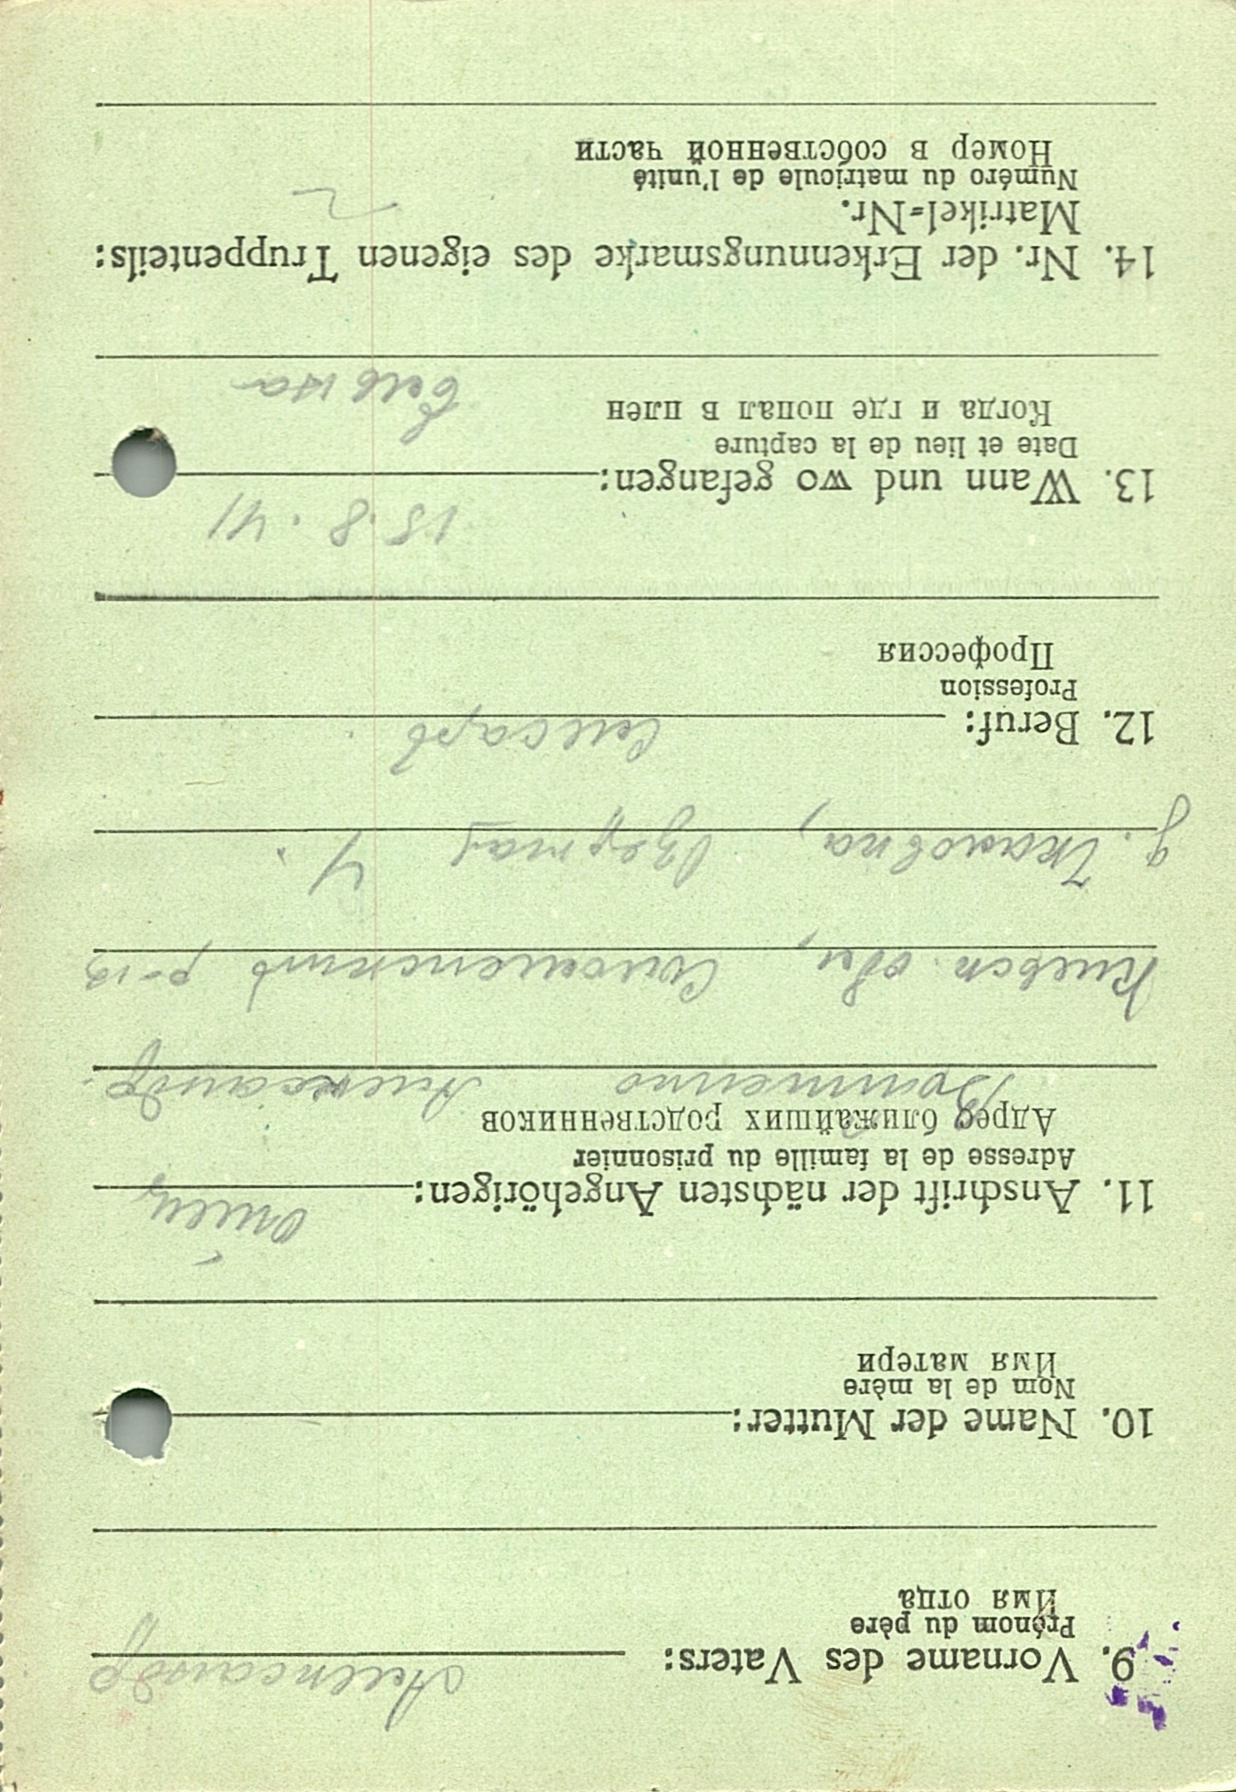 9. Vorname des Vaters: Александр
Prénom du père
Имя отца
10. Name der Mutter:
Nom de la mère
Имя матери
11. Anschrift der nächsten Angehörigen: отец
Adresse de la famille du prisonnier
Адрес ближайших родственников
Александр.
Киевск. обл,
д.
12. Beruf: слесарь
Profession
Профессия
15.8.41
13. Wann und wo gefangen:
Date et lieu de la capture
Когда и где попал в плен
14. Nr. der Erkennungsmarke des eigenen Truppenteils:
Matrikel=Nr.
Numéro du matricule de l'unité
Номер в собственной части